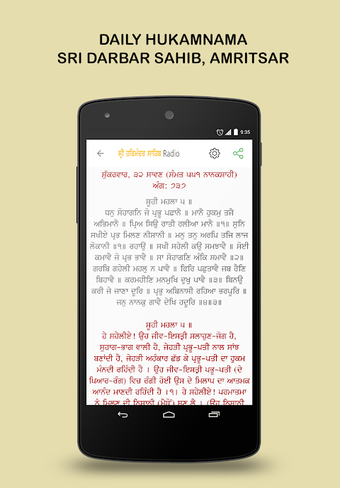 DAILY HUKAMNAMA
SRI DARBAR SAHIB, AMRITSAR
9:35
ਸ੍ਰੀ ਹਰਿਮੰਦਰ ਸਾਹਿਬ Radio
ਸ਼ੁੱਕਰਵਾਰ, ੩੨ ਸਾਵਣ (ਸੰਮਤ ੫੫੧ ਨਾਨਕਸ਼ਾਹੀ)
ਅੰਗ: ੭੩੭
ਸੂਹੀ ਮਹਲਾ ੫ ॥
ਧਨੁ ਸੋਹਾਗਨਿ ਜੋ ਪ੍ਰਭੂ ਪਛਾਨੈ ॥ ਮਾਨੈ ਹੁਕਮੁ ਤਜੈ
ਅਭਿਮਾਨੈ ॥ ਪ੍ਰਿਅ ਸਿਉ ਰਾਤੀ ਰਲੀਆ ਮਾਨੈ ॥੧॥ ਸੁਨਿ
ਸਖੀਏ ਪ੍ਰਭ ਮਿਲਣ ਨੀਸਾਨੀ ॥ ਮਨੁ ਤਨੁ ਅਰਪਿ ਤਜਿ ਲਾਜ
ਲੋਕਾਨੀ ॥੧॥ ਰਹਾਉ ॥ ਸਖੀ ਸਹੇਲੀ ਕਉ ਸਮਝਾਵੈ ॥ ਸੋਈ
ਕਮਾਵੈ ਜੋ ਪ੍ਰਭ ਭਾਵੈ ॥ ਸਾ ਸੋਹਾਗਣਿ ਅੰਕਿ ਸਮਾਵੈ ॥੨॥
ਗਰਬਿ ਗਹੇਲੀ ਮਹਲੁ ਨ ਪਾਵੈ ॥ ਫਿਰਿ ਪਛੁਤਾਵੈ ਜਬ ਰੈਣਿ
ਬਿਹਾਵੈ ॥ ਕਰਮਹੀਣਿ ਮਨਮੁਖਿ ਦੁਖੁ ਪਾਵੈ ॥੩॥ ਬਿਨਉ
ਕਰੀ ਜੇ ਜਾਣਾ ਦੂਰਿ ॥ ਪ੍ਰਭੁ ਅਬਿਨਾਸੀ ਰਹਿਆ ਭਰਪੂਰਿ ॥
ਜਨੁ ਨਾਨਕੁ ਗਾਵੈ ਦੇਖਿ ਹਦੂਰਿ ॥੪॥੩॥
ਸੂਹੀ ਮਹਲਾ ੫ ॥
ਹੇ ਸਹੇਲੀਏ! ਉਹ ਜੀਵ-ਇਸਤ੍ਰੀ ਸਲਾਹੁਣ-ਜੋਗ ਹੈ,
ਸੁਹਾਗ-ਭਾਗ ਵਾਲੀ ਹੈ, ਜੇਹੜੀ ਪ੍ਰਭੂ-ਪਤੀ ਨਾਲ ਸਾਂਝ
ਬਣਾਂਦੀ ਹੈ, ਜੇਹੜੀ ਅਹੰਕਾਰ ਛੱਡ ਕੇ ਪ੍ਰਭੂ-ਪਤੀ ਦਾ ਹੁਕਮ
ਮੰਨਦੀ ਰਹਿੰਦੀ ਹੈ । ਉਹ ਜੀਵ-ਇਸਤ੍ਰੀ ਪ੍ਰਭੂ-ਪਤੀ (ਦੇ
ਪਿਆਰ-ਰੰਗ) ਵਿਚ ਰੰਗੀ ਹੋਈ ਉਸ ਦੇ ਮਿਲਾਪ ਦਾ ਆਤਮਕ
ਆਨੰਦ ਮਾਣਦੀ ਰਹਿੰਦੀ ਹੈ ।੧। ਹੇ ਸਹੇਲੀਏ! ਪਰਮਾਤਮਾ
ਨੂੰ ਮਿਲਣ ਦੀ ਨਿਸ਼ਾਨੀ (ਮੈਥੋਂ) ਸੁਣ ਲੈ । (ਉਹ ਨਿਸ਼ਾਨੀ